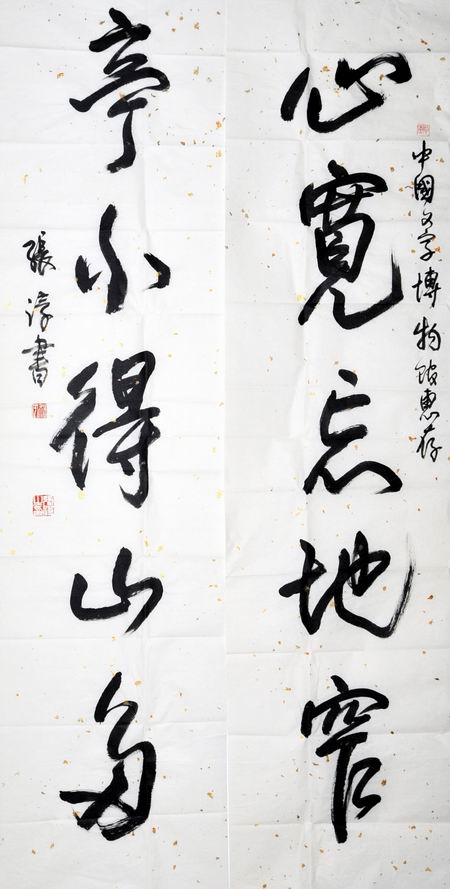 中國文字博物館惠存
心寬忘地窄
亭小得山多
張淳書